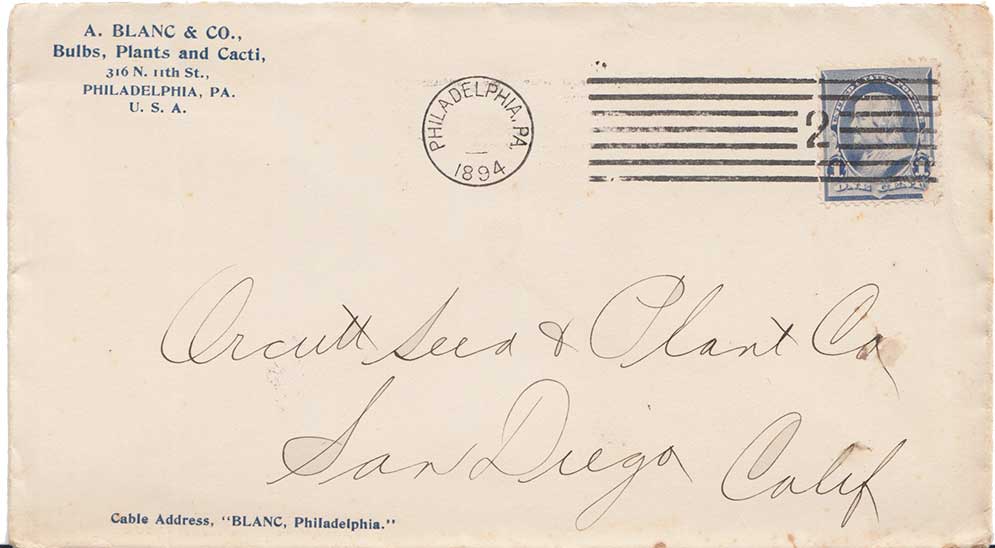 A. BLANC & CO.,
Bulbs, Plants and Cacti,
316 N. 11th St.,
PHILADELPHIA, PA.
U. S. A.
PHILADELPHIA, PA.
1894
2
UNITED STATES POSTAGE
1 1
ONE CENT
Orcutt Seed & Plant Co
San Diego Calif
Cable Address, "BLANC, Philadelphia."